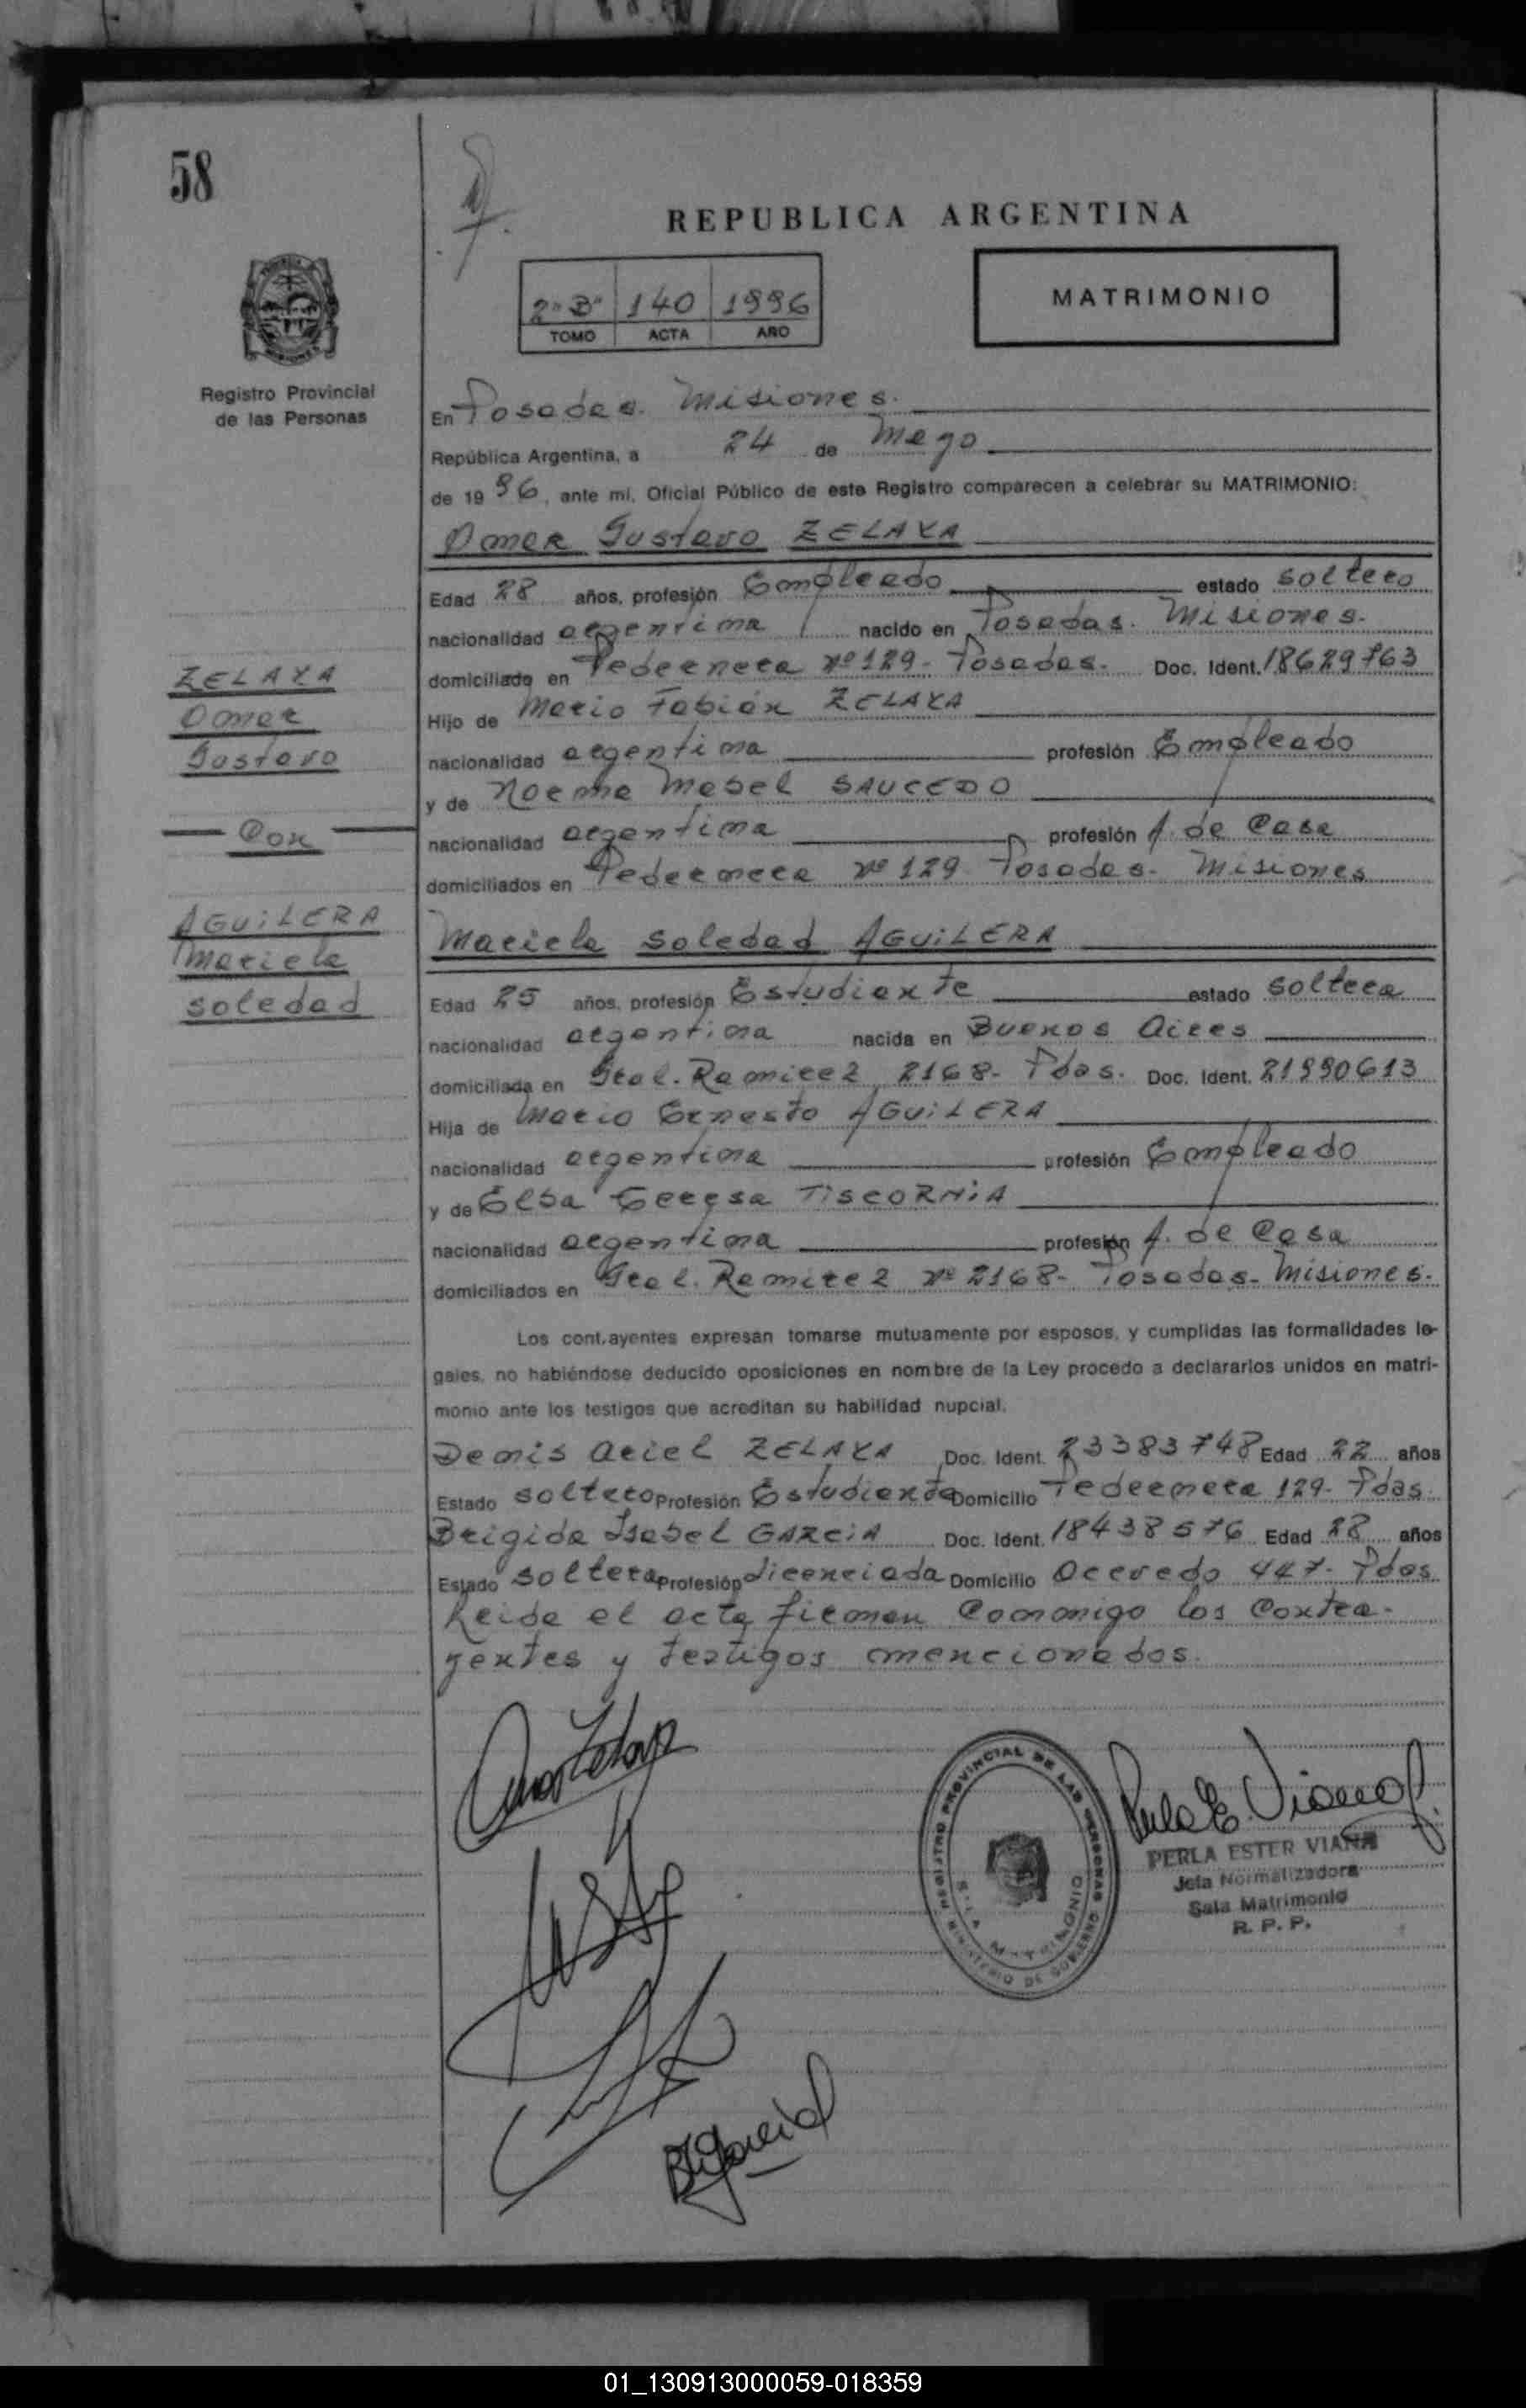 58
REPUBLICA ARGENTINA
2 "B" 140 1996
TOMO ACTA AÑO
MATRIMONIO
Registro Provincial
de las Personas
En Posadas. Misiones.
República Argentina, a 24 de Mayo
de 1996, ante mí, Oficial Público de este Registro comparecen a celebrar su MATRIMONIO:
Omar Gustavo ZELAYA
Edad 28 años, profesión Empleado estado soltero
nacionalidad argentina nacido en Posadas. Misiones.
domiciliado en Pedernera nº 129- Posadas. Doc. Ident. 18629763
Hijo de Mario Fabián ZELAYA
nacionalidad argentina profesión Empleado
y de Noemia Mabel SAUCEDO
nacionalidad argentina profesión A. de Casa
domiciliados en Pedernera nº 129 Posadas- Misiones
ZELAYA
Omar
Gustavo
Con
AGUILERA
Mariela
Soledad
Mariela Soledad AGUILERA
Edad 25 años, profesión Estudiante estado soltera
nacionalidad argentina nacida en Buenos Aires
domiciliada en Gral. Ramirez 2168- Pdas. Doc. Ident. 21990613
Hija de Mario Ernesto AGUILERA
nacionalidad argentina profesión Empleado
y de Elba Teresa TISCORNIA
nacionalidad argentina profesión A. de Casa
domiciliados en Gral. Ramirez nº 2168- Posadas- Misiones.
Los cont.ayentes expresan tomarse mutuamente por esposos, y cumplidas las formalidades le-
gales, no habiéndose deducido oposiciones en nombre de la Ley procedo a declararlos unidos en matri-
monio ante los testigos que acreditan su habilidad nupcial.
Denis Ariel ZELAYA Doc. Ident. 23383748 Edad 22 años
Estado soltero Profesión Estudiante Domicilio Pedernera 129- Pdas.
Brigida Isabel GARCIA Doc. Ident. 18438576 Edad 28 años
Estado soltera Profesión Licenciada Domicilio Acevedo 447- Pdas
Leida el acta firman conmigo los contra-
yentes y testigos mencionados.
REGISTRO PROVINCIAL DE LAS PERSONAS
SALA MATRIMONIO
MINISTERIO DE GOBIERNO
PERLA ESTER VIANA
Jefa Normalizadora
Sala Matrimonio
R. P. P.
01_130913000059-018359